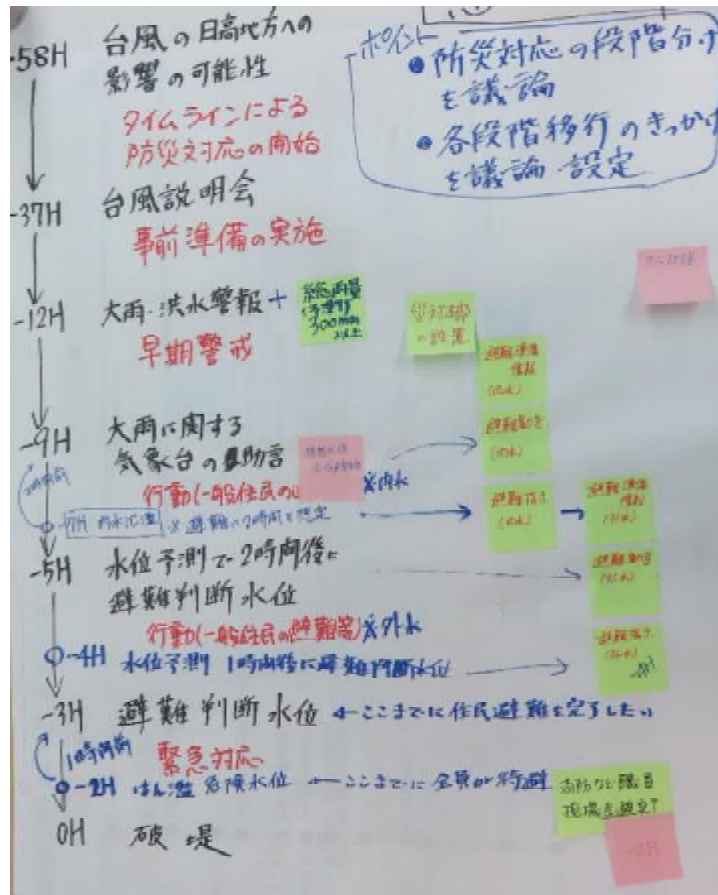 -58H 台風の日高地方への
影響の可能性
タイムラインによる
防災対応の開始
ポイント
● 防災対応の段階分け
を議論
● 各段階移行のきっかけ
を議論・設定
-37H 台風説明会
事前準備の実施
-12H 大雨・洪水警報 +
総雨量
300mm
以上
早期警戒
の設置
避難準備
情報
(内水)
-9H 大雨に関する
気象台の助言
避難勧告
(内水)
行動(一般住民の
※内水
2時間前
-7H 内水氾濫 ※避難に2時間を想定
避難指示
(内水)
避難準備
情報
(外水)
-5H 水位予測で2時間後に
避難判断水位
避難勧告
(外水)
行動(一般住民の避難等) ※外水
-4H 水位予測 1時間後に避難判断水位
避難指示
(外水)
-3H 避難判断水位 ←ここまでに住民避難を完了したい
1時間前
緊急対応
-2H はん濫危険水位 ←ここまでに全員が待避
消防など職員
現場を離れ?
-2H
0H 破堤